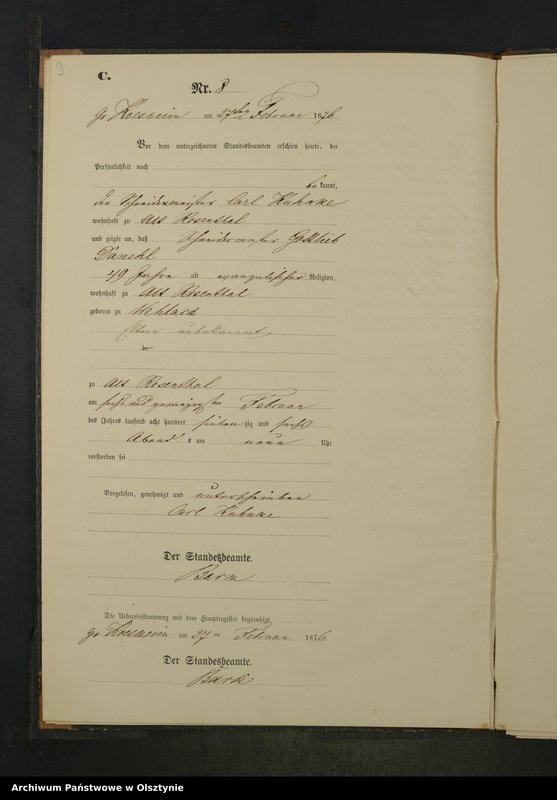 9
C.
Nr. 8
am 27ten Februar 1876
Vor dem unterzeichneten Standesbeamten erschien heute, der
Persönlichkeit nach
bekannt,
der Schneidermeister Carl Kuhnke
wohnhaft zu Alt Rosenthal
und zeigte an, daß Gottlieb
79 Jahre alt evangelischer Religion,
wohnhaft zu Alt Rosenthal
geboren zu Wehlack
Eltern unbekannt
zu Alt Rosenthal
am sechs und zwanzigsten Februar
des Jahres tausend acht hundert siebenzig und sechs
Abends um neun Uhr
verstorben sei
Vorgelesen, genehmigt und unterschrieben
Carl Kuhnke
Der Standesbeamte.
Die Uebereinstimmung mit dem Hauptregister beglaubigt
am 27ten Februar 1876
Der Standesbeamte.
Archiwum Państwowe w Olsztynie